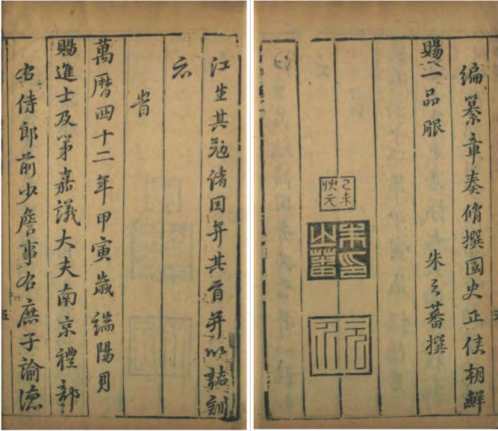 江生其因弁其首并以訓
示
萬曆四十二年甲寅歲端陽月
賜進士及第嘉議大夫南京禮部
右侍郎前少詹事右庶子諭德
編纂章奏脩撰國史正使朝鮮
賜一品服 朱之蕃撰
己未
狀元
朱印
之蕃
元介